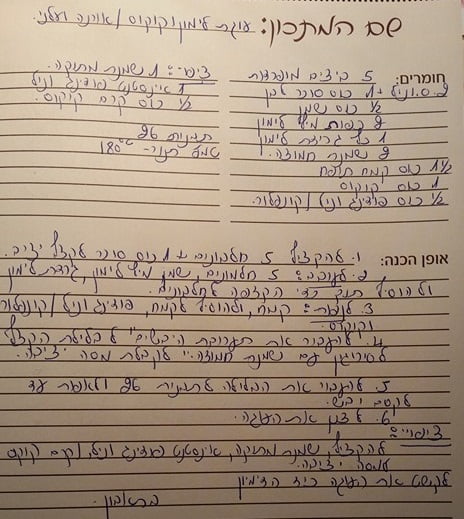 שם המתכון: עוגת לימון וקוקוס / אורנה ועלני
חומרים:
5 ביצים מופרדות
2 ס. וניל + 1 כוס סוכר לבן
1/2 כוס שמן
2 כפות מיץ לימון
1 כף גרידת לימון
2 שמנת חמוצה.
1 1/2 כוס קמח תופח
1 כוס קוקוס
1/2 כוס פודינג וניל / קונפלור.
ציפוי: 1 שמנת מתוקה.
1 אינסטנט פודינג וניל
1/2 כוס קרם קוקוס.
תבנית 26
טמפ' תנור - 180°c
אופן הכנה:
1. להקציף 5 חלבונים + 1 כוס סוכר לקצף יציב.
2. לערבב: 5 חלמונים, שמן, מיץ לימון, גרידת לימון
ולהוסיף תוך כדי הקצפה לחלבונים.
3. לנפות: קמח, ולהוסיף לקמח, פודינג וניל / קונפלור
וקוקוס.
4. להעביר את תערובת ה"יבשים" לבלילת הקצף
לסירוגין עם שמנת חמוצה. לקבלת מסה יציבה.
5. להעביר את הבלילה לתבנית 26 ולאפות עד
לקיסם יבש.
6. לצנן את העוגה.
ציפוי:
להקציף, שמנת מתוקה, אינסטנט פודינג וניל, קרם קוקוס
למסה יציבה.
לקשט את העוגה כיד הדמיון
בתאבון.